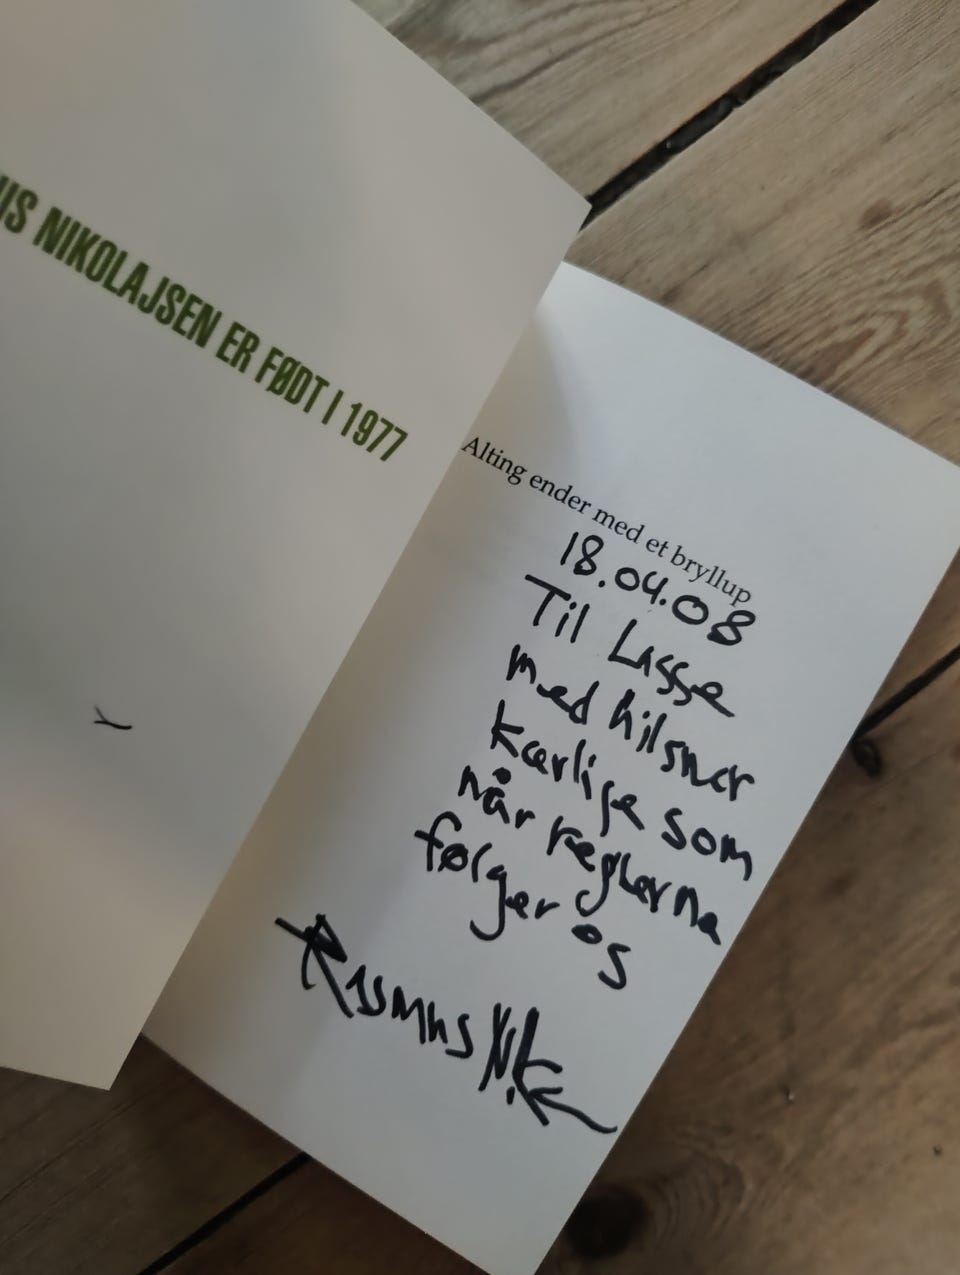 US NIKOLAJSEN ER FØDT I 1977
Alting ender med et bryllup
18.04.08
Til Lasse
med hilsner
kærlige som
når reglerne
følger os
Rasmus Nik